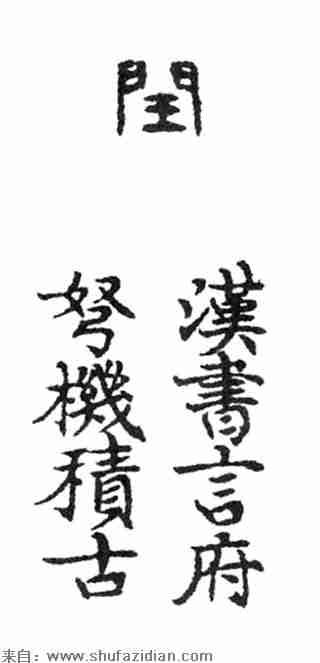 閏
漢書言府
弩機積古
来自：www.shufazidian.com